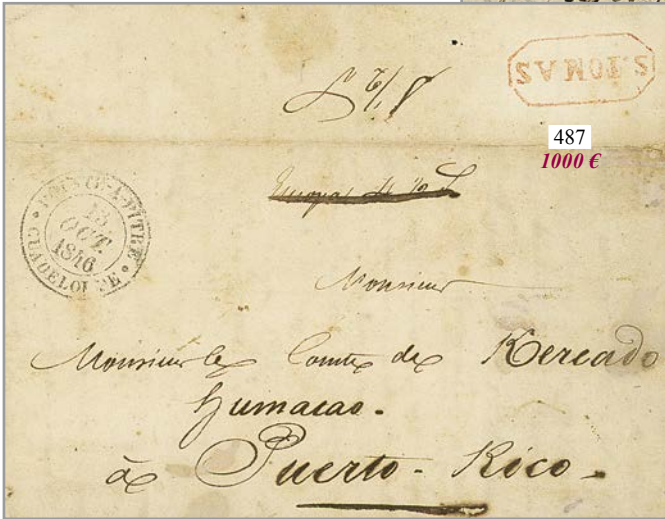 S. TOMAS
487
1000 €
POINTE-A-PITRE
13
OCT.
1846
GUADELOUPE
Monsieur
Monsieur le Comte de Kereado
humacao.
à Puerto-Rico.